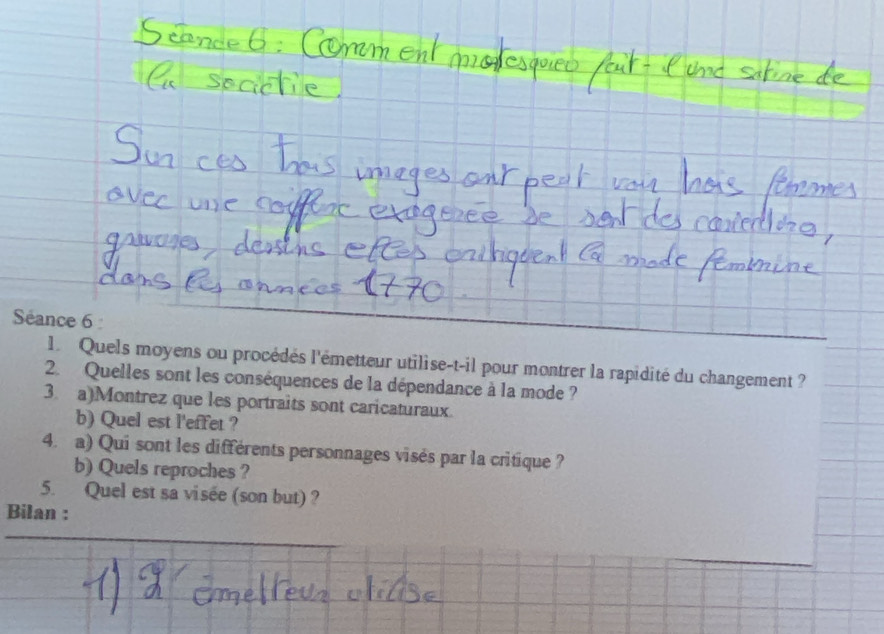 Séance 6 : Comment montesquieu fait-il une satire de
la sociétie.
Sur ces trois images ont peut voir trois femmes
avec une coiffure exagerée se sont des
gravures, dessins elles critiquent la mode feminine
dans les années 1770.
Séance 6 :
1. Quels moyens ou procédés l'émetteur utilise-t-il pour montrer la rapidité du changement ?
2. Quelles sont les conséquences de la dépendance à la mode ?
3. a)Montrez que les portraits sont caricaturaux.
b) Quel est l'effet ?
4. a) Qui sont les différents personnages visés par la critique ?
b) Quels reproches ?
5. Quel est sa visée (son but) ?
Bilan :
1) L'émetteur utilise